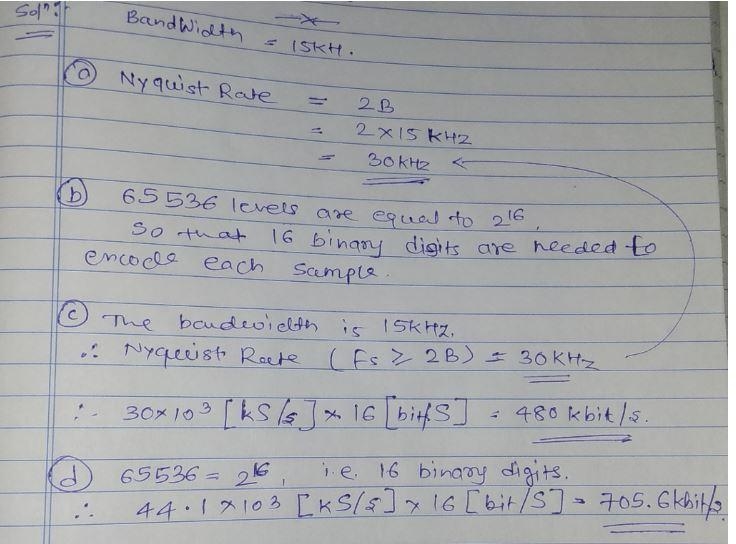 Solⁿ:-
BandWidth = 15KH.
(a) Nyquist Rate = 2B
= 2 × 15 KHZ
= 30KHz
(b) 65536 levels are equal to 2^16,
so that 16 binary digits are needed to
encode each sample.
(c) The bandwidth is 15KHZ.
∴ Nyquist Rate (Fs ≥ 2B) = 30KHz
∴ 30×10^3 [kS/s] × 16 [bit/S] = 480 kbit/s.
(d) 65536 = 2^16, i.e. 16 binary digits.
∴ 44.1 × 10^3 [KS/s] × 16 [bit/S] = 705.6kbit/s